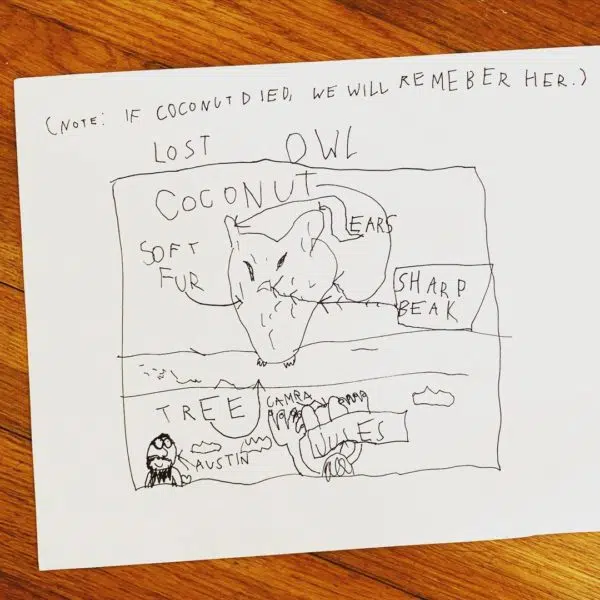 (NOTE: IF COCONUT DIED, WE WILL REMEBER HER.)
LOST OWL
COCONUT
EARS
SOFT
FUR
SHARP
BEAK
TREE
CAMRA
JULES
AUSTIN